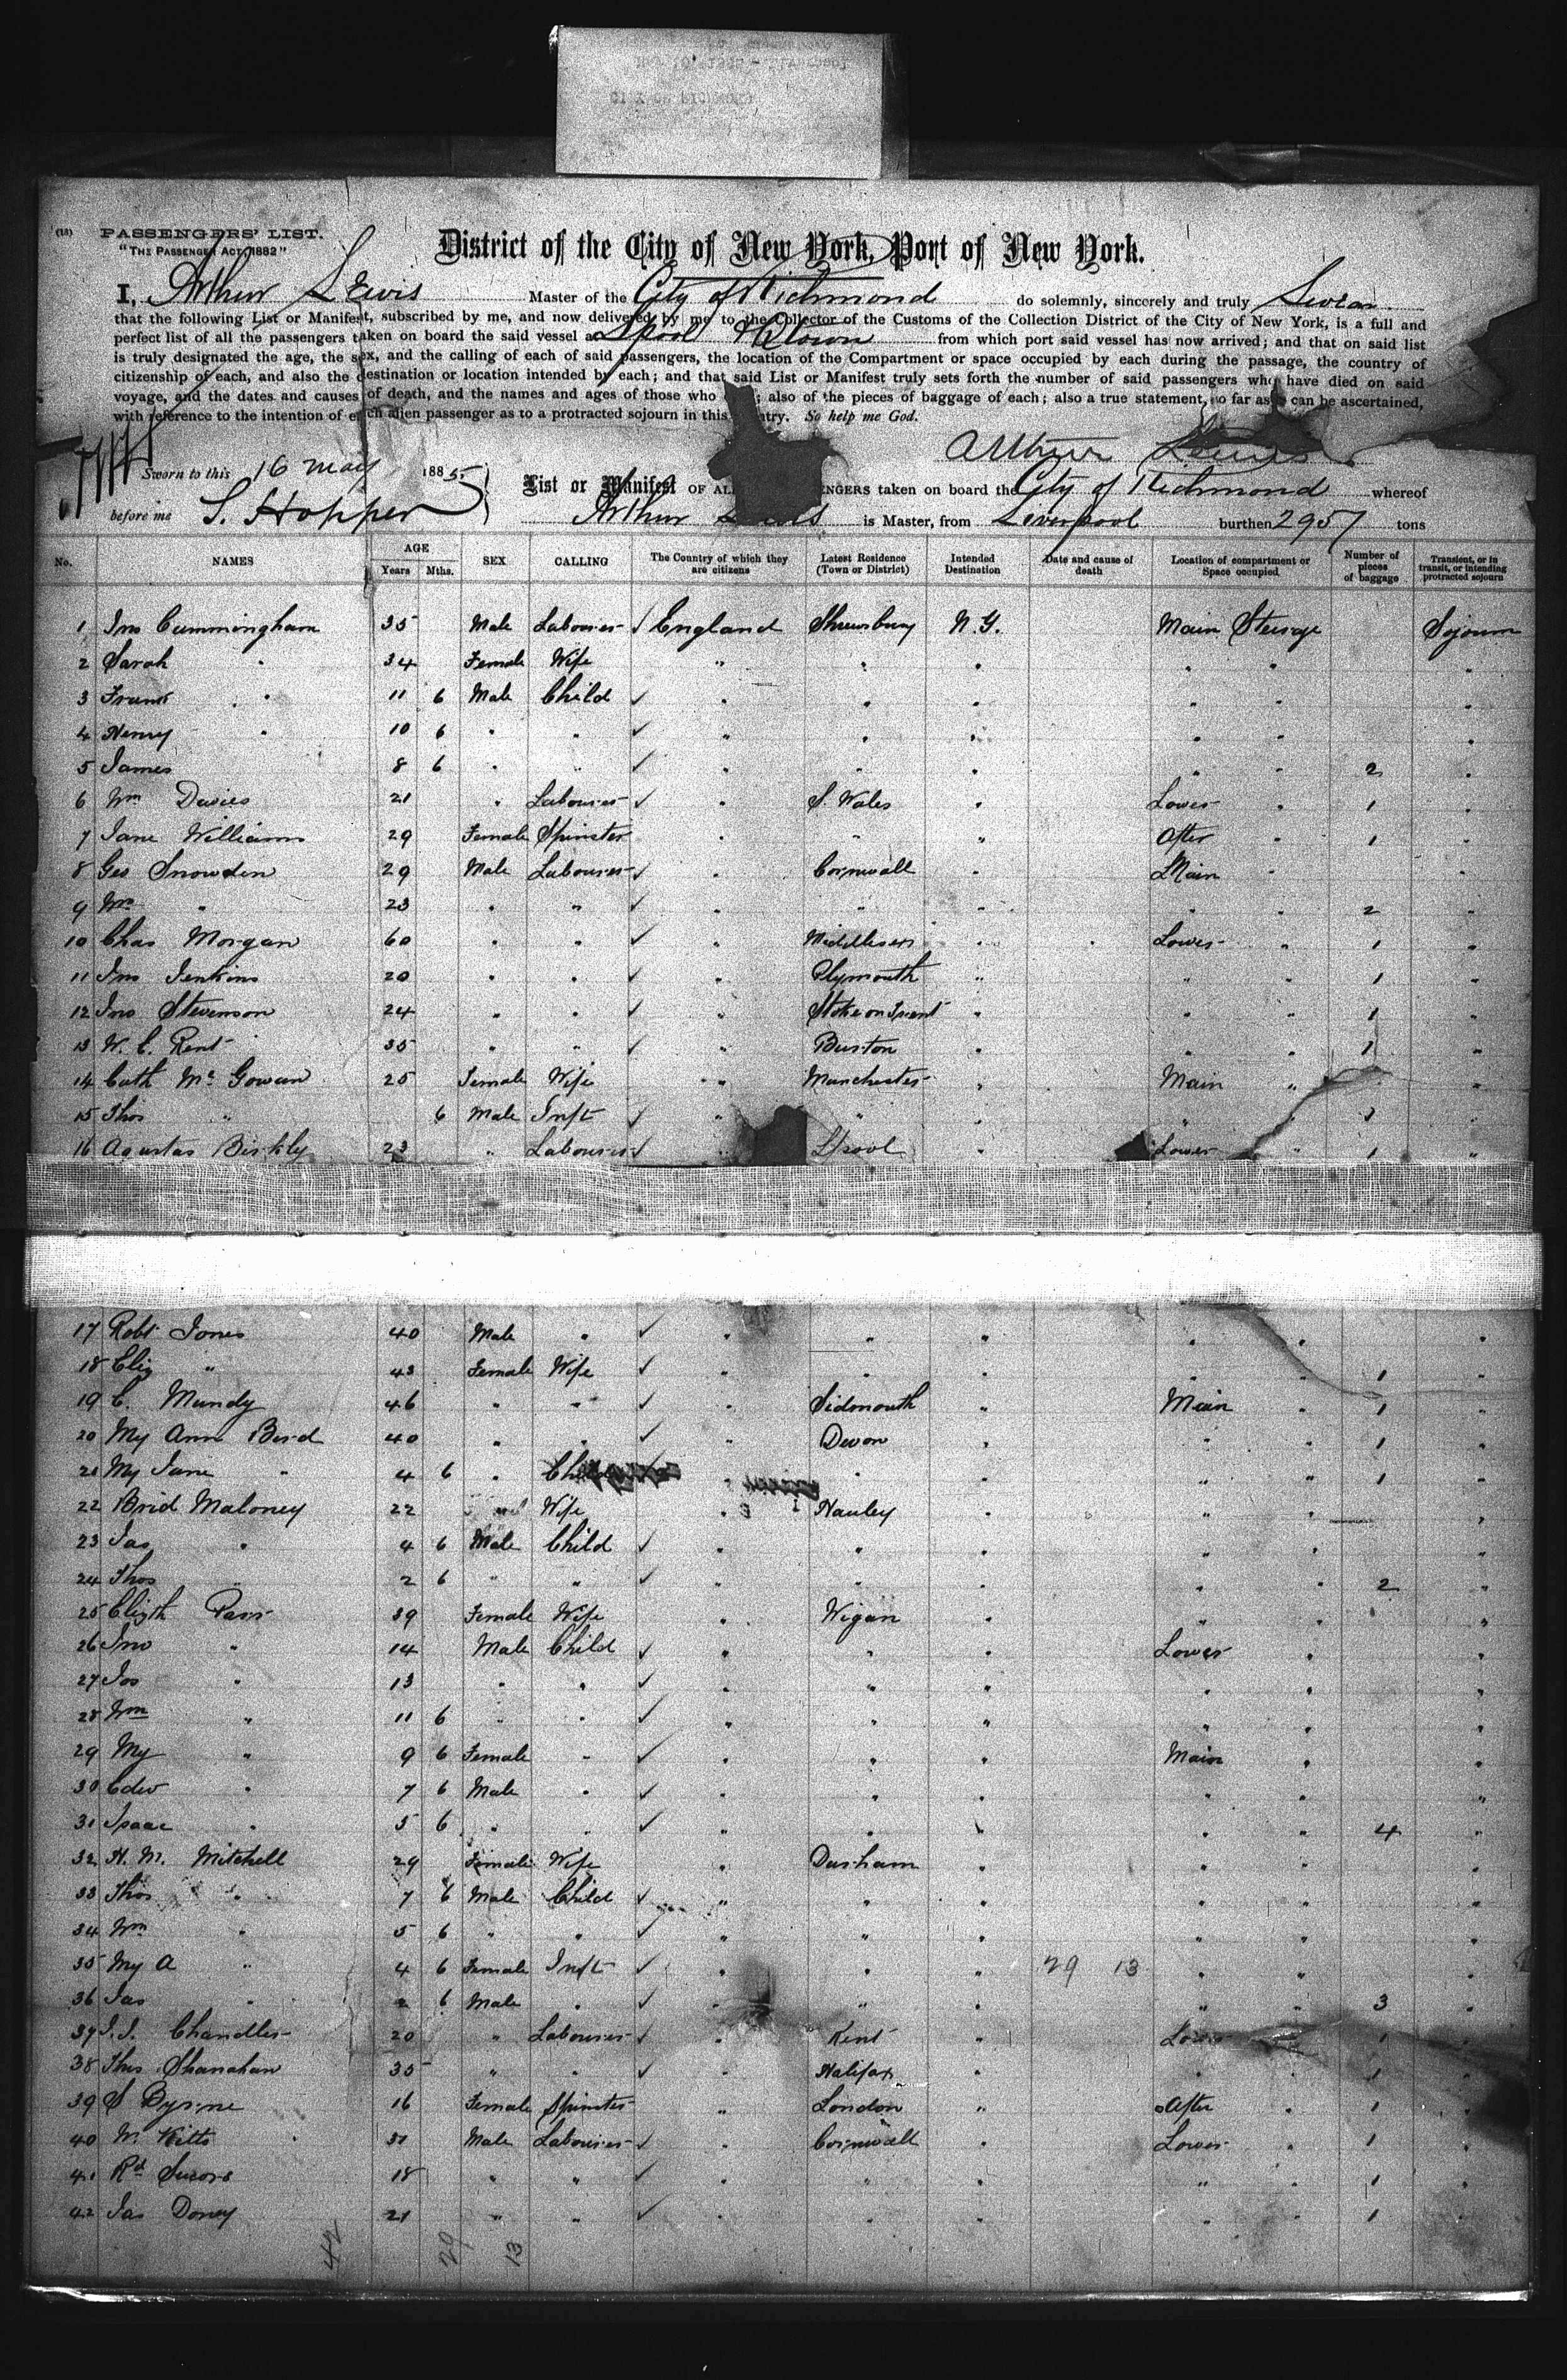 (18) PASSENGERS' LIST.
"THE PASSENGER ACT, 1882"
District of the City of New York, Port of New York.
I, Arthur Lewis Master of the City of Richmond do solemnly, sincerely and truly Swear
that the following List or Manifest, subscribed by me, and now delivered by me to the Collector of the Customs of the Collection District of the City of New York, is a full and
perfect list of all the passengers taken on board the said vessel at L'pool & Q'town from which port said vessel has now arrived; and that on said list
is truly designated the age, the sex, and the calling of each of said passengers, the location of the Compartment or space occupied by each during the passage, the country of
citizenship of each, and also the destination or location intended by each; and that said List or Manifest truly sets forth the number of said passengers who have died on said
voyage, and the dates and causes of death, and the names and ages of those who ; also of the pieces of baggage of each; also a true statement, so far as can be ascertained,
with reference to the intention of each alien passenger as to a protracted sojourn in this ntry. So help me God.
Arthur Lewis
Sworn to this 16 May 1885
before me S. Hopper
List or Manifest OF ALL ENGERS taken on board the City of Richmond whereof
Arthur Lewis is Master, from Liverpool burthen 2957 tons
No. NAMES AGE Years Mths. SEX CALLING The Country of which they are citizens Latest Residence (Town or District) Intended Destination Date and cause of death Location of compartment or Space occupied Number of pieces of baggage Transient, or in transit, or intending protracted sojourn
1 Jno Cummingham 35 Male Labourer ✓ England Shrewsbury N.Y. Main Steerage Sojourn
2 Sarah " 34 Female Wife " " " " " "
3 Frank " 11 6 Male Child ✓ " " " " " "
4 Henry " 10 6 " " ✓ " " " " " "
5 James 8 6 " " ✓ " " " " " 2 "
6 Wm Davies 21 " Labourer ✓ " S. Wales " Lower " 1 "
7 Jane Williams 29 Female Spinster " " " After " 1 "
8 Geo Snowden 29 Male Labourer ✓ " Cornwall " Main " "
9 Wm " 23 " " ✓ " " " " " 2 "
10 Chas Morgan 60 " " ✓ " Middlesex " Lower " 1 "
11 Jno Jenkins 20 " " ✓ " Plymouth " " " 1 "
12 Jno Stevenson 24 " " ✓ " Stoke on Trent " " " 1 "
13 W. C. Kent 35 " " ✓ " Burton " " " 1 "
14 Cath Mc Gowan 25 Female Wife " Manchester " Main " "
15 Thos " 6 Male Inft ✓ " " " " " 1 "
16 Agustas 23 " Labourer ✓ " L'pool " Lower " 1 "
17 Robt Jones 40 Male " ✓ " " " " " "
18 Eliz " 43 Female Wife ✓ " " " " " 1 "
19 C. Mundy 46 " " ✓ " Sidmouth " Main " 1 "
20 My Ann Bird 40 " " ✓ " Devon " " " 1 "
21 My Jane " 4 6 " Child " " " " " 1 "
22 Brid Maloney 22 Wife " Hanley " " "
23 Jas " 4 6 Male Child ✓ " " " " " "
24 Thos " 2 6 " " ✓ " " " " " 2 "
25 Elizth 39 Female Wife " Wigan " " " "
26 Jno " 14 Male Child ✓ " " " Lower " "
27 Jos " 13 " " ✓ " " " " " "
28 Wm " 11 6 " " ✓ " " " " " "
29 My " 9 6 Female " ✓ " " " Main " "
30 Edw " 7 6 Male " ✓ " " " " " "
31 Isaac " 5 6 " " ✓ " " " " " 4 "
32 H. M. Mitchell 29 Female Wife " Durham " " " "
33 Thos " 7 6 Male Child ✓ " " " " " "
34 Wm " 5 6 " " ✓ " " " " " "
35 My A " 4 6 Female Inft ✓ " " " 29 13 " " "
36 Jas " 2 6 Male " ✓ " " " " " 3 "
37 J. J. Chandler 20 " Labourer ✓ " Kent " Lower 1 "
38 Thos Shanahan 35 " " ✓ " Halifax " 1 "
39 S Byrne 16 Female Spinster " London " After " 1 "
40 W. Kitto 31 Male Labourer ✓ " Cornwall " Lower " 1 "
41 Rd 18 " " ✓ " " " " " 1 "
42 Jas Doney 21 " " ✓ " " " " " 1 "
42 29 13